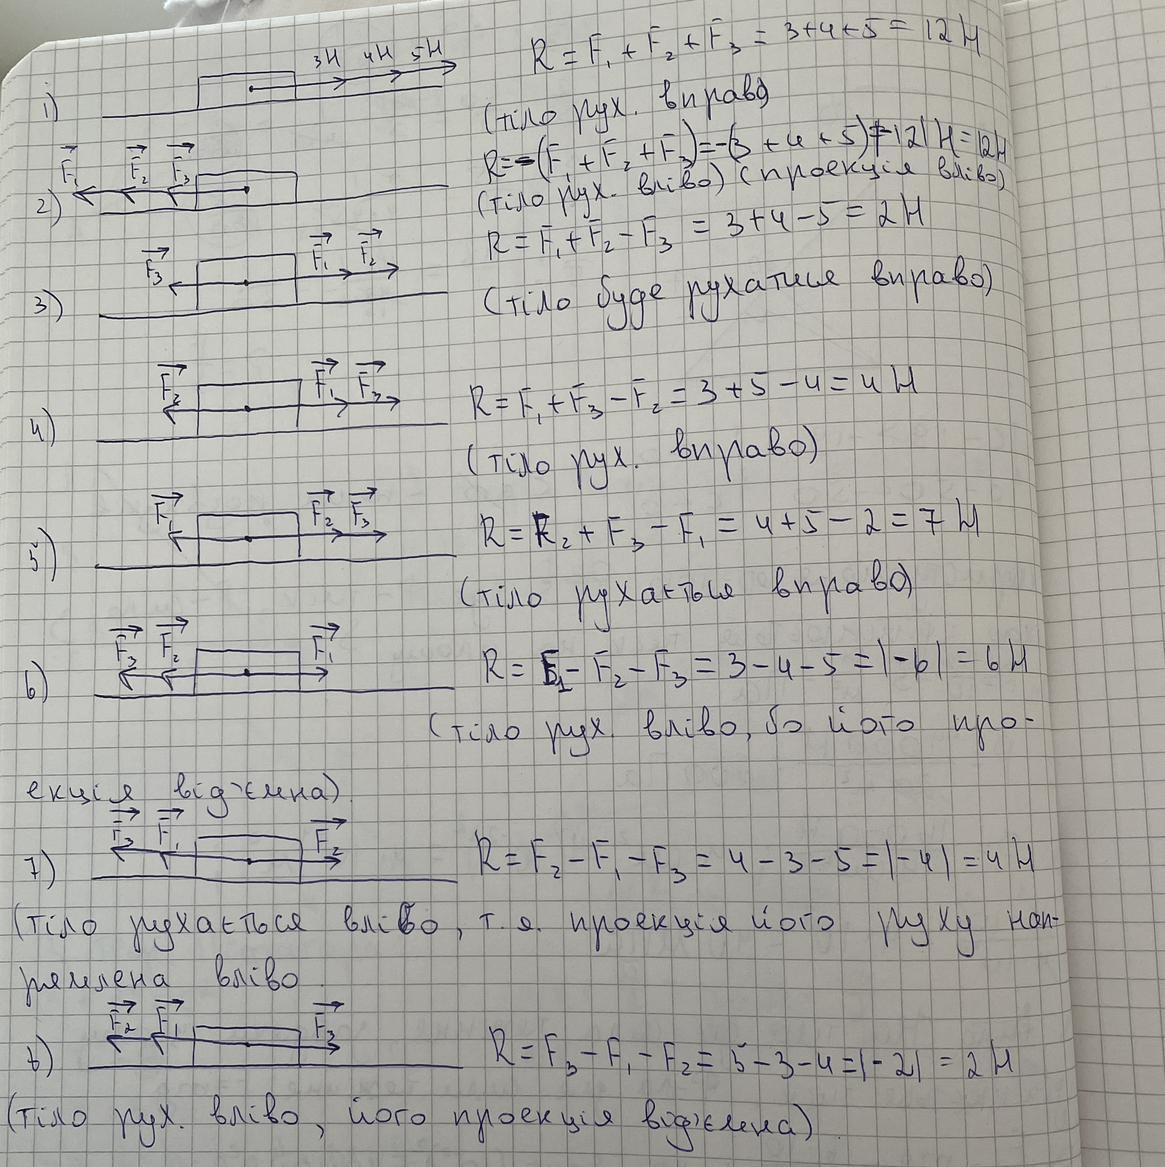 1) 3Н 4Н 5Н R = F₁ + F₂ + F₃ = 3+4+5 = 12 Н
(тіло рух. вправо
2) F₁ F₂ F₃ R=-(F₁ + F₂ + F₃)=-(3 + 4 + 5)=|-12| Н=12Н
(тіло рух. вліво) (проекція вліво)
3) F₃ F₁ F₂ R = F₁ + F₂ - F₃ = 3+4-5 = 2 Н
(тіло буде рухатися вправо)
4) F₂ F₁ F₃ R = F₁ + F₃ - F₂ = 3+5-4 = 4 Н
(тіло рух. вправо)
5) F₁ F₂ F₃ R = F₂ + F₃ - F₁ = 4+5-2 = 7 Н
(тіло рухається вправо)
6) F₃ F₂ F₁ R = F₁ - F₂ - F₃ = 3-4-5 = |-6| = 6 Н
(тіло рух. вліво, бо його про-
екція від'ємна)
7) F₃ F₁ F₂ R = F₂ - F₁ - F₃ = 4-3-5 = |-4| = 4 Н
(тіло рухається вліво, т.я. проекція його руху нап-
рямлена вліво
8) F₂ F₁ F₃ R = F₃ - F₁ - F₂ = 5-3-4 = |-2| = 2 Н
(тіло рух. вліво, його проекція від'ємна)